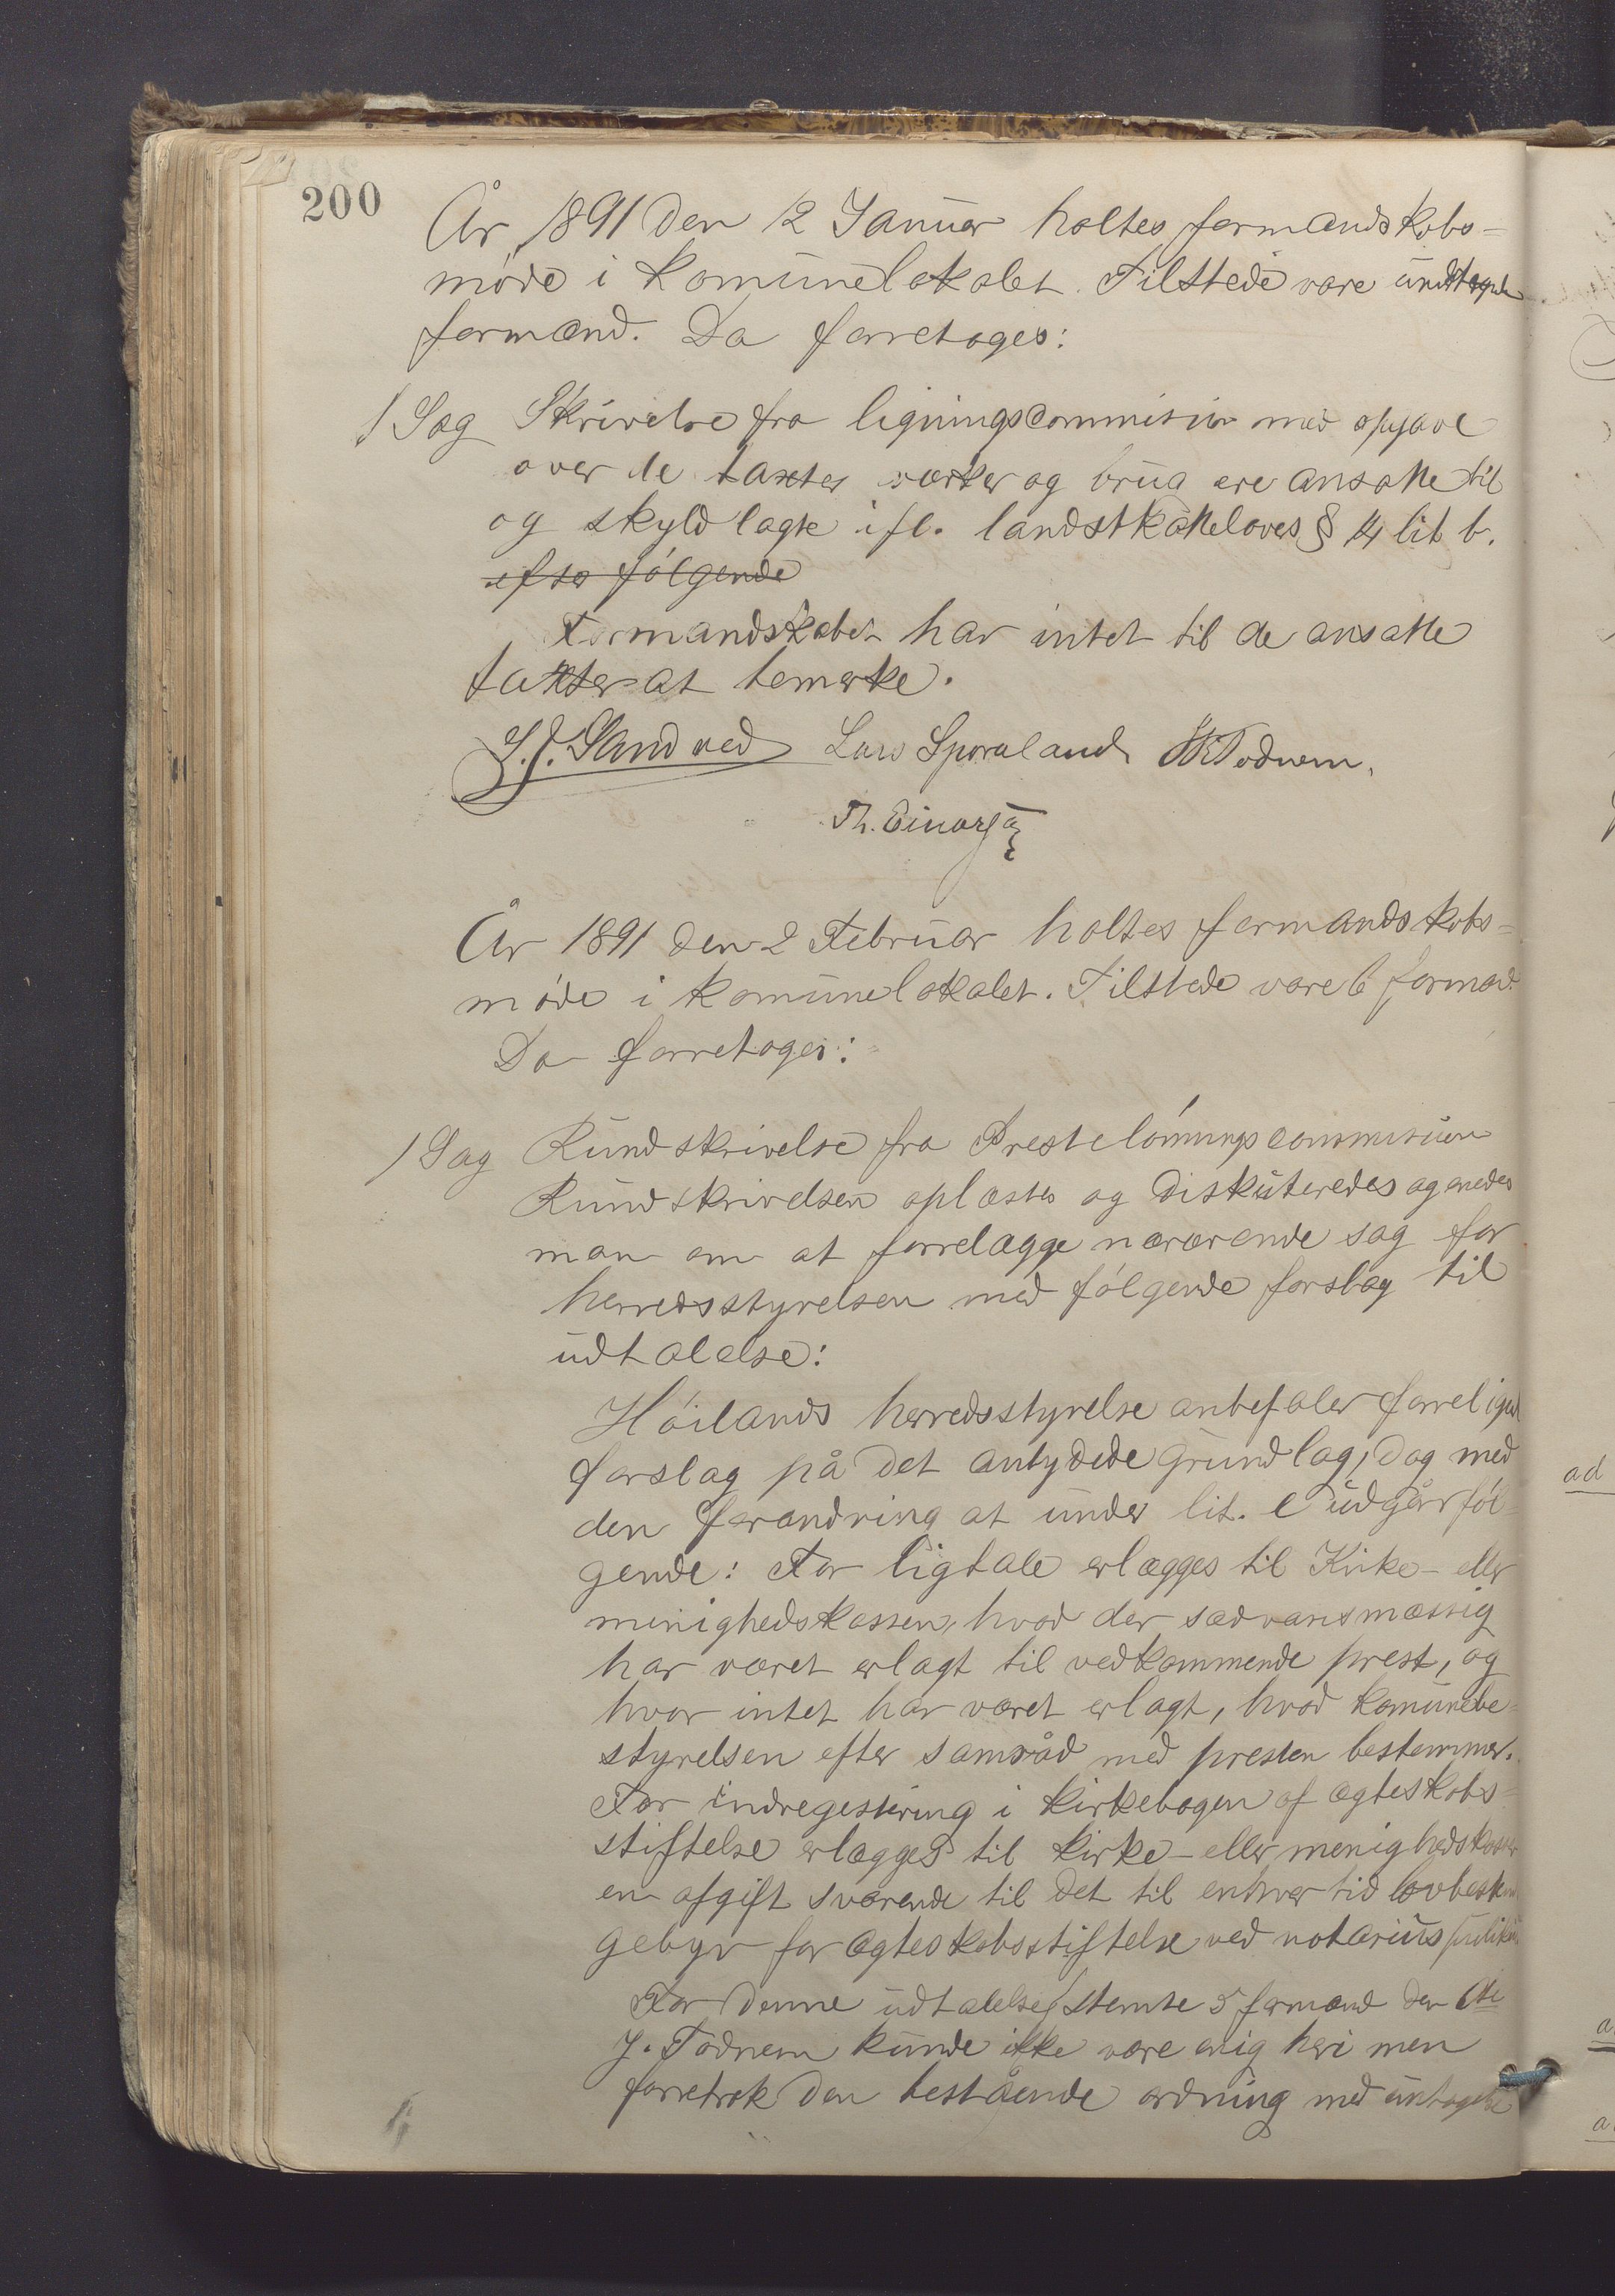 200
År 1891 den 12 Januar holtes formandskabs-
møde i Komunelokalet. Tilstede vare undtagne
formænd. Da forretoges:
1 Sag Skrivelse fra ligningscommision med opgave
over de taxter værker og brug ere ansatte til
og skyldlagte ifl. landskatteloves § 4 lit b.
efter følgende
Formandskabet har intet til de ansatte
taxter at bemerke.
S. J. Sandved Lars Sporaland Todnem.
Th. Einarse
År 1891 den 2 Februar holtes formandskabs-
møde i komunelokalet. Tilstede vare 6 formæd.
Da forretoges:
1 Sag Rundskrivelse fra Prestelønningscommisionen
Rundskrivelsen oplæstes og diskuteredes og enedes
man om at forrelægge nærærende sag for
herredsstyrelsen med følgende forslag til
udtalelse:
Høilands herredsstyrelse anbefaler forreligend
forslag på det antydede grundlag, dog med
den forandring at under lit. e udgår føl-
gende: For ligtale erlægges til Kirke- eller
menighedskassen, hvad der sædvansmæssig
har været erlagt til vedkommende prest, og
hvor intet har været erlagt, hvad komunebe-
styrelsen efter samråd med presten bestemmer.
For indregestering i kirkebogen af ægteskabs-
stiftelse erlægges til kirke- eller menighedskassen
en afgift svarende til det til enhver tid lovbestem
gebyr for ægteskabsstiftelse ved notarius publikus
For denne udtalelse stemte 5 formænd den 6te
J. Todnem kunde ikke være enig heri men
forretrak den bestående ordning med untagelse
ad